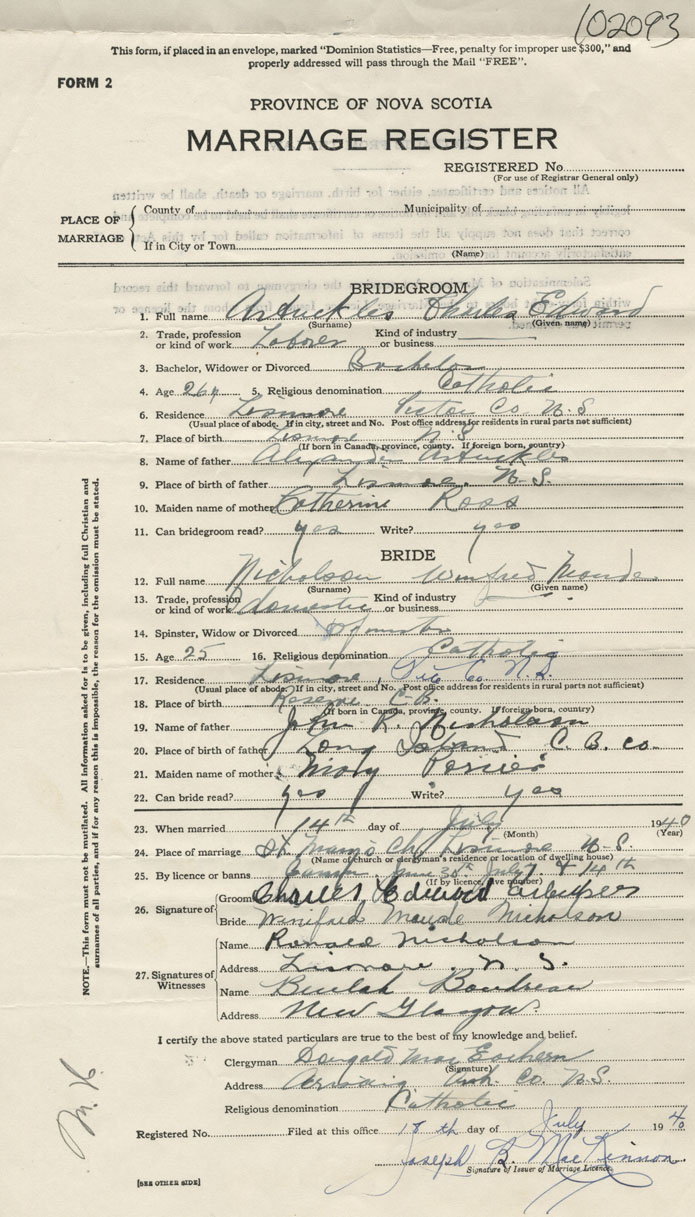 102093
This form, if placed in an envelope, marked "Dominion Statistics—Free, penalty for improper use $300," and
properly addressed will pass through the Mail "FREE".
FORM 2
PROVINCE OF NOVA SCOTIA
MARRIAGE REGISTER
REGISTERED No.
(For use of Registrar General only)
PLACE OF MARRIAGE
County of Municipality of
If in City or Town
(Name)
BRIDEGROOM
1. Full name Arbuckles Charles Edward
(Surname) (Given name)
2. Trade, profession or kind of work Laborer Kind of industry or business
3. Bachelor, Widower or Divorced Bachelor
4. Age 26 5. Religious denomination Catholic
6. Residence Lismore Pictou Co N.S
(Usual place of abode. If in city, street and No. Post office address for residents in rural parts not sufficient)
7. Place of birth Lismore N S
(If born in Canada, province, county. If foreign born, country)
8. Name of father Alexander Arbuckles
9. Place of birth of father Lismore, N.S.
10. Maiden name of mother Catherine Ross
11. Can bridegroom read? yes Write? yes
BRIDE
12. Full name Nicholson Winifred Maude
(Surname) (Given name)
13. Trade, profession or kind of work domestic Kind of industry or business
14. Spinster, Widow or Divorced Spinster
15. Age 25 16. Religious denomination Catholic
17. Residence Lismore, Pic Co. N.S.
(Usual place of abode. If in city, street and No. Post office address for residents in rural parts not sufficient)
18. Place of birth C.B.
(If born in Canada, province, county. If foreign born, country)
19. Name of father John R. Nicholson
20. Place of birth of father Long Island C. B. Co.
21. Maiden name of mother
22. Can bride read? yes Write? yes
23. When married 14th day of July 1940
(Month) (Year)
24. Place of marriage St Mary's Ch, Lismore N.S.
(Name of church or clergyman's residence or location of dwelling house)
25. By licence or banns Banns, June 30th July 7 & 14th
(If by licence, give number)
26. Signature of
Groom Charles Edward
Bride Winifred Maude Nicholson
27. Signatures of Witnesses
Name Ronald Nicholson
Address Lismore, N. S.
Name Beulah Boudreau
Address New Glasgow.
I certify the above stated particulars are true to the best of my knowledge and belief.
Clergyman Dougald MacEachern
(Signature)
Address Arisaig Ant. Co. N.S.
Religious denomination Catholic
Registered No. Filed at this office 18th day of July 1940
Joseph B. MacKinnon
Signature of Issuer of Marriage Licence.
[SEE OTHER SIDE]
NOTE.—This form must not be mutilated. All information asked for is to be given, including full Christian and
surnames of all parties, and if for any reason this is impossible, the reason for the omission must be stated.